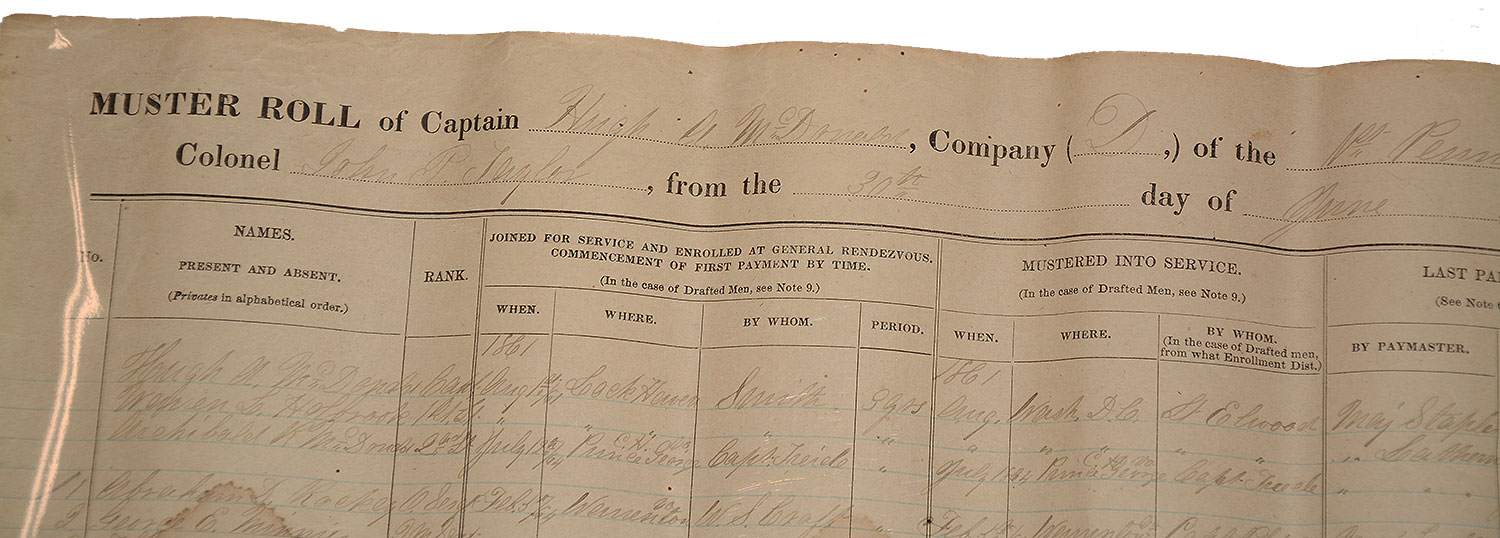 MUSTER ROLL of Captain Hugh A McDonald, Company (D,) of the 1st Penn
Colonel John P Taylor, from the 30th day of June
No.
NAMES.
PRESENT AND ABSENT.
(Privates in alphabetical order.)
RANK.
JOINED FOR SERVICE AND ENROLLED AT GENERAL RENDEZVOUS.
COMMENCEMENT OF FIRST PAYMENT BY TIME.
(In the case of Drafted Men, see Note 9.)
WHEN.
WHERE.
BY WHOM.
PERIOD.
MUSTERED INTO SERVICE.
(In the case of Drafted Men, see Note 9.)
WHEN.
WHERE.
BY WHOM.
(In the case of Drafted men,
from what Enrollment Dist.)
LAST PA
(See Note
BY PAYMASTER.
1861 1861
Hugh A McDonald Capt Aug Lock Haven Smith 3 yrs Aug. Wash. D.C. Lt Elwood Maj Staple
Warren L Holbrook 1st Lt " " " " " " " "
Archibald McDonald 2nd Lt July Prince George Capt. " July Prince George Capt. " "
1 Abraham Sergt Feb Warrenton W. S. Craft " Feb Warrenton Capt
2 George E.